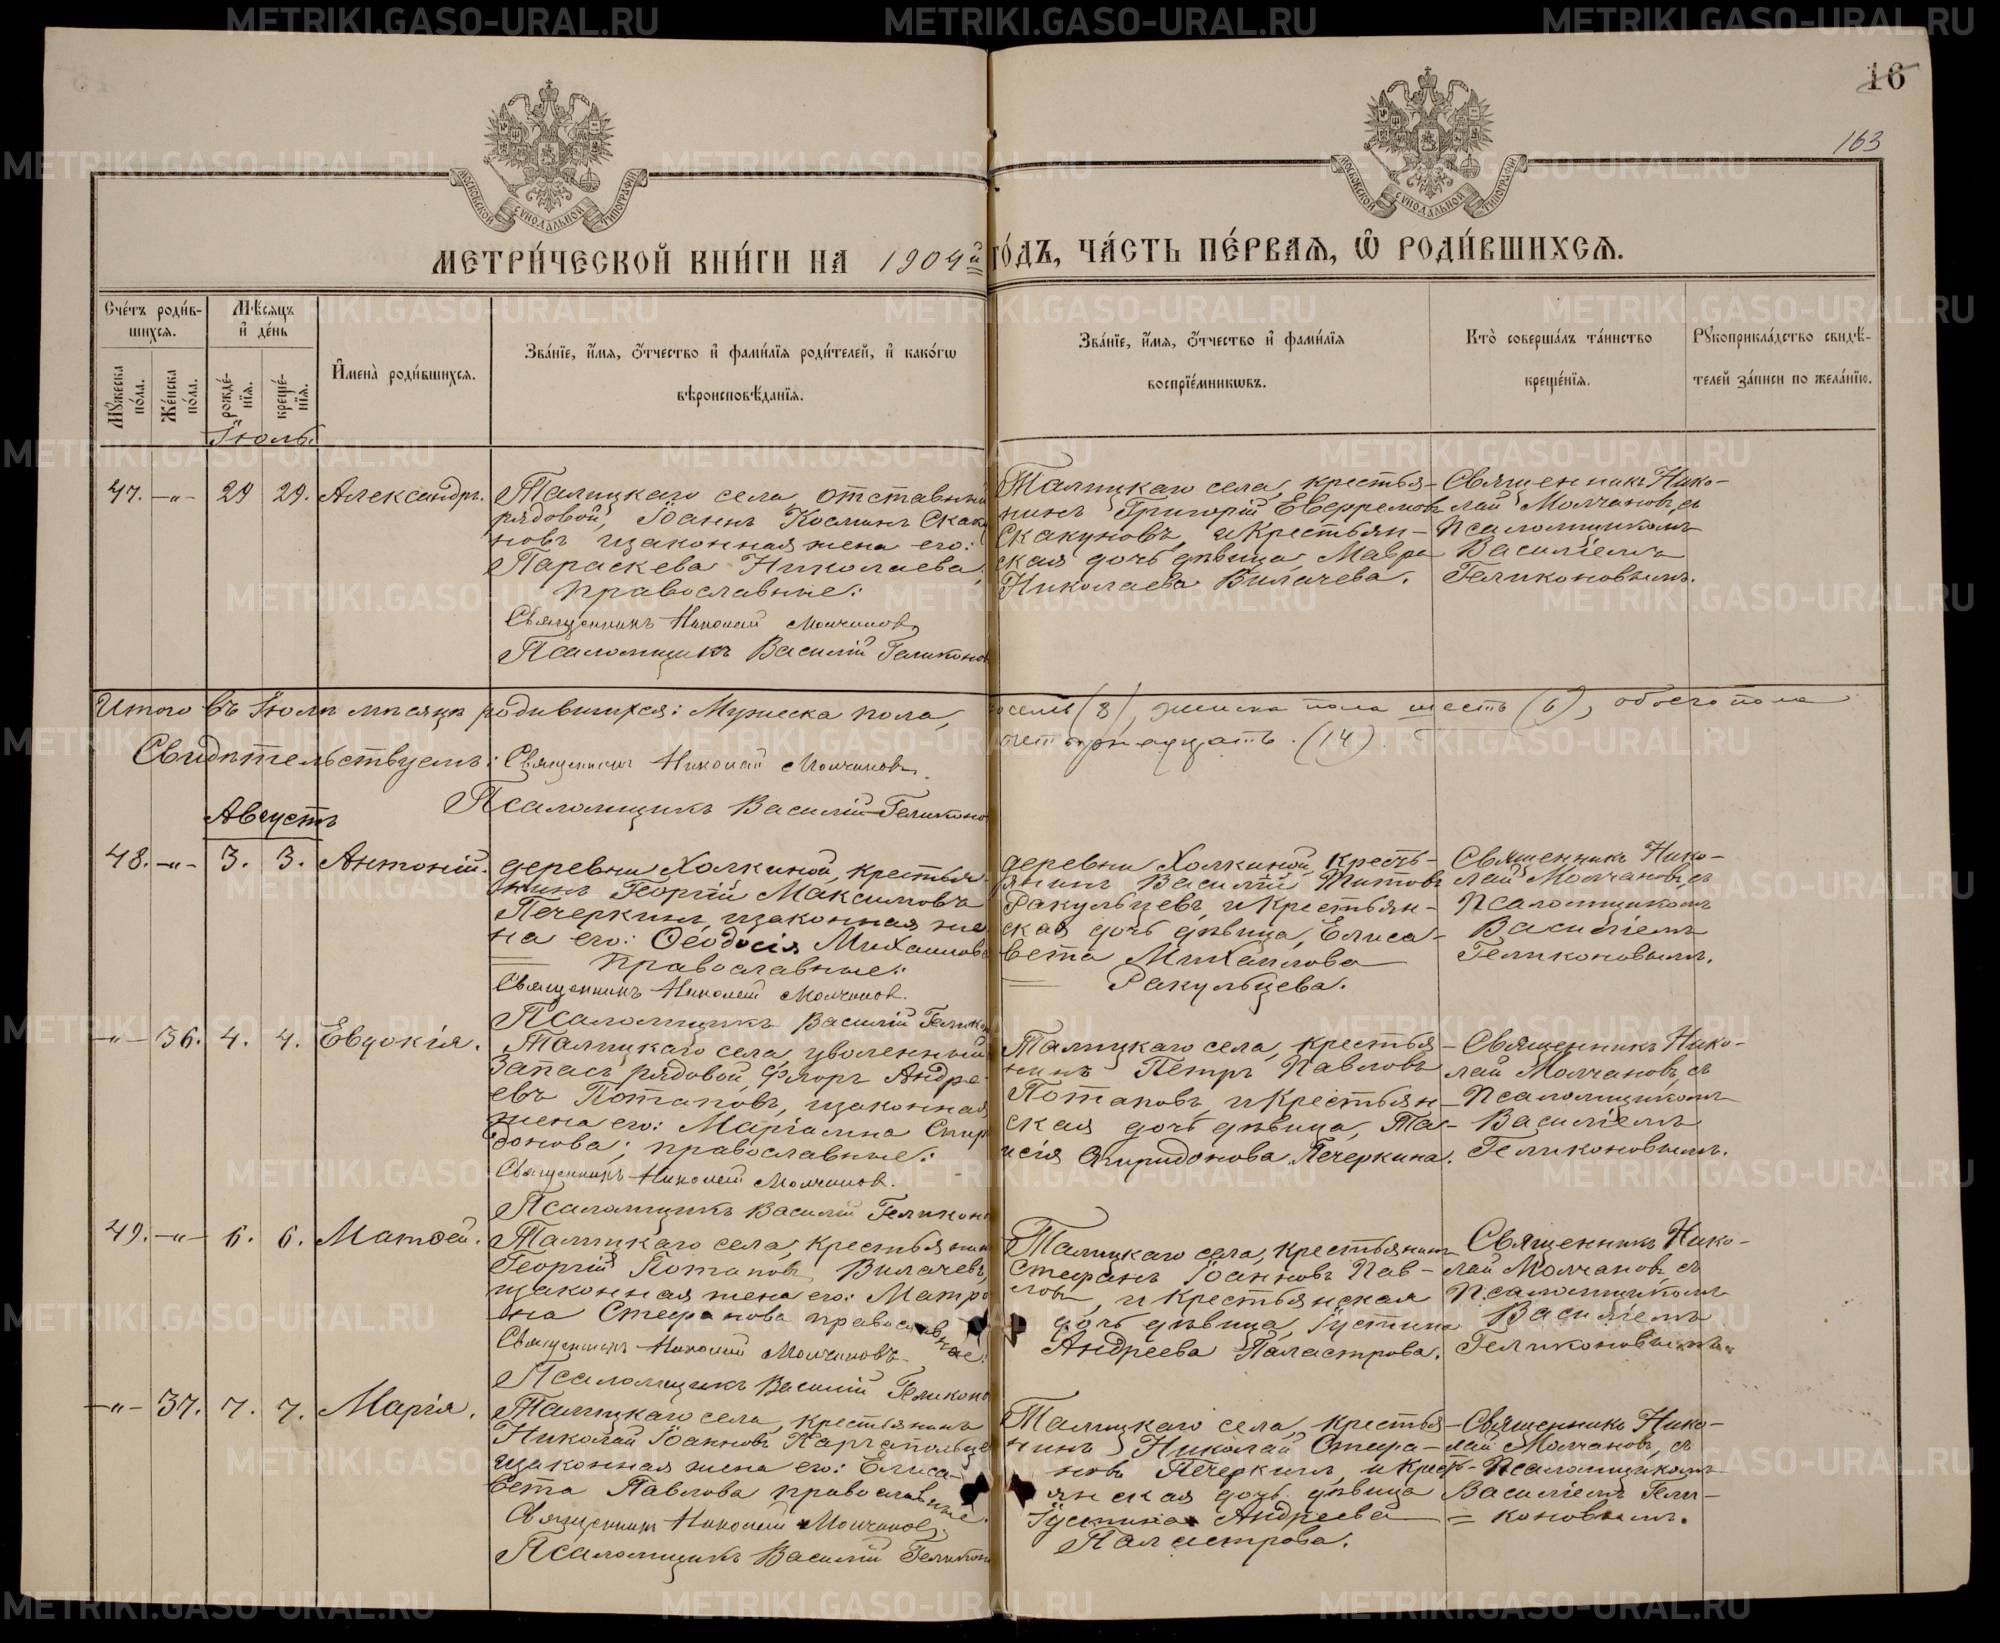 16
163
МОСКОВСКОЙ СѴНОДАЛЬНОЙ ТИПОГРАФІИ
МОСКОВСКОЙ СѴНОДАЛЬНОЙ ТИПОГРАФІИ
МЕТРИ́ЧЕСКОЙ КНИ́ГИ НА 1904й ГО́ДЪ, ЧА́СТЬ ПЕ́РВАЯ, Ѿ РОДИ́ВШИХСЯ.
Сче́тъ роди́в-
шихся.
Му́жеска по́ла.
Же́нска по́ла.
Мѣ́сяцъ
и҆ де́нь
рожде́-
нїя.
креще́-
нїя.
И҆мена̀ роди́вшихся.
Зва́нїе, и҆́мя, ѻ҆́тчество и҆ фами́лїя роди́телей, и҆ како́гѡ
вѣроисповѣ́данїя.
Зва́нїе, и҆́мя, ѻ҆́тчество и҆ фами́лїя
воспрїе́мникѡвъ.
Кто̀ соверша́лъ та́инство
креще́нїя.
Рꙋкоприкла́дство свидѣ́-
телей за́писи по жела́нїю.
Іюль.
47. -„- 29 29. Александръ.
Талицкаго села, отставный
рядовой, Іоаннъ Косминъ Скаку
новъ и законная жена его:
Параскева Николаева,
православные:
Священникъ Николай Молчановъ
Псаломщикъ Василій Геликонов
Талицкаго села, крестья-
нинъ Григорій Евфремовъ
Скакуновъ, и Крестьян-
ская дочь дѣвица, Мавра
Николаева Вилачева.
Священникъ Нико-
лай Молчановъ, съ
Псаломщикомъ
Василіемъ
Геликоновымъ.
Итого въ Іюлѣ мѣсяцѣ родившихся: Мужеска пола, восемь (8), женска пола шесть (6), обоего пола
четырнадцать. (14).
Свидѣтельствуемъ: Священникъ Николай Молчановъ.
Псаломщикъ Василій Геликоно
Августъ
48. -„- 3. 3. Антоній.
деревни Холкиной, крестья
нинъ Георгій Максимовъ
Печеркинъ, и законная же
на его: Ѳеодосія Михаилова
православные:
Священникъ Николай Молчанов.
Псаломщикъ Василій Гелико
деревни Холкиной, Кресть-
янинъ Василій Титовъ
Ракульцевъ, и Крестьян-
ская дочь дѣвица, Елиса-
вета Михаилова
Ракульцева.
Священникъ Нико-
лай Молчановъ, съ
Псаломщикомъ
Василіемъ
Геликоновымъ.
-„- 36. 4. 4. Евдокія.
Талицкаго села, уволенный
Запасъ рядовой, Флоръ Андре-
евъ Потаповъ, и законная
жена его: Маріамна Спир
донова; православные:
Священникъ Николай Молчанов.
Псаломщикъ Василій Геликоно
Талицкаго села, крестья-
нинъ Петръ Павловъ
Потаповъ, и Крестьян-
ская дочь дѣвица, Та-
исія Спиридонова Печеркина.
Священникъ Нико-
лай Молчановъ, съ
Псаломщикомъ
Василіемъ
Геликоновымъ.
49. -„- 6. 6. Матѳей.
Талицкаго села, Крестьянин
Георгій Потапов Вилачевъ,
и законная жена его: Матро
на Стефанова православные:
Священникъ Николай Молчановъ.
Псаломщикъ Василій Геликоно
Талицкаго села, Крестьянинъ
Стефанъ Іоанновъ Пав-
ловъ, и Крестьянская
дочь дѣвица, Іустина
Андреева Паластрова.
Священникъ Нико-
лай Молчановъ, съ
Псаломщикомъ
Василіемъ
Геликоновымъ.
-„- 37. 7. 7. Марія.
Талицкаго села, крестьянинъ
Николай Іоанновъ Каргапольце
и законная жена его: Елиса-
вета Павлова православные.
Священникъ Николай Молчановъ
Псаломщикъ Василій Геликон
Талицкаго села, крестья-
нинъ Николай Стефа-
новъ Печеркинъ, и Крест-
янская дочь дѣвица
Іустина Андреева
Паластрова.
Священникъ Нико-
лай Молчановъ, съ
Псаломщикомъ
Василіемъ Гели-
= коновымъ.